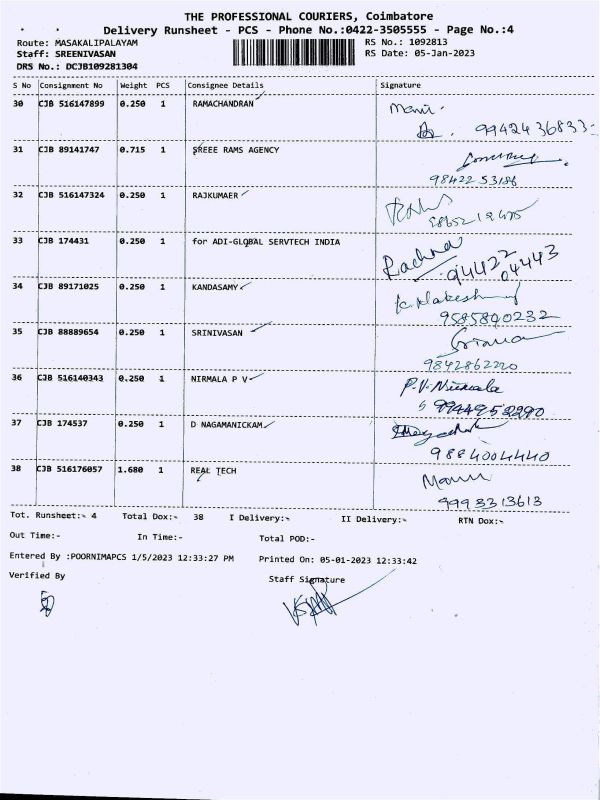 THE PROFESSIONAL COURIERS, Coimbatore
Delivery Runsheet - PCS - Phone No.:0422-3505555 - Page No.:4
Route: MASAKALIPALAYAM RS No.: 1092813
Staff: SREENIVASAN RS Date: 05-Jan-2023
DRS No.: DCJB109281304
S No Consignment No Weight PCS Consignee Details Signature
30 CJB 516147899 0.250 1 RAMACHANDRAN
9942436833
31 CJB 89141747 0.715 1 SREEE RAMS AGENCY
98422 53186
32 CJB 516147324 0.250 1 RAJKUMAER
33 CJB 174431 0.250 1 for ADI-GLOBAL SERVTECH INDIA
Rachna
94422
04443
34 CJB 89171025 0.250 1 KANDASAMY
9585840232
35 CJB 88889654 0.250 1 SRINIVASAN
9842862220
36 CJB 516140343 0.250 1 NIRMALA P V
P.V. Nirmala
9944952290
37 CJB 174537 0.250 1 D NAGAMANICKAM
9884004440
38 CJB 516176057 1.680 1 REAL TECH
9998313613
Tot. Runsheet:- 4 Total Dox:- 38 I Delivery:- II Delivery:- RTN Dox:-
Out Time:- In Time:- Total POD:-
Entered By :POORNIMAPCS 1/5/2023 12:33:27 PM Printed On: 05-01-2023 12:33:42
Verified By Staff Signature